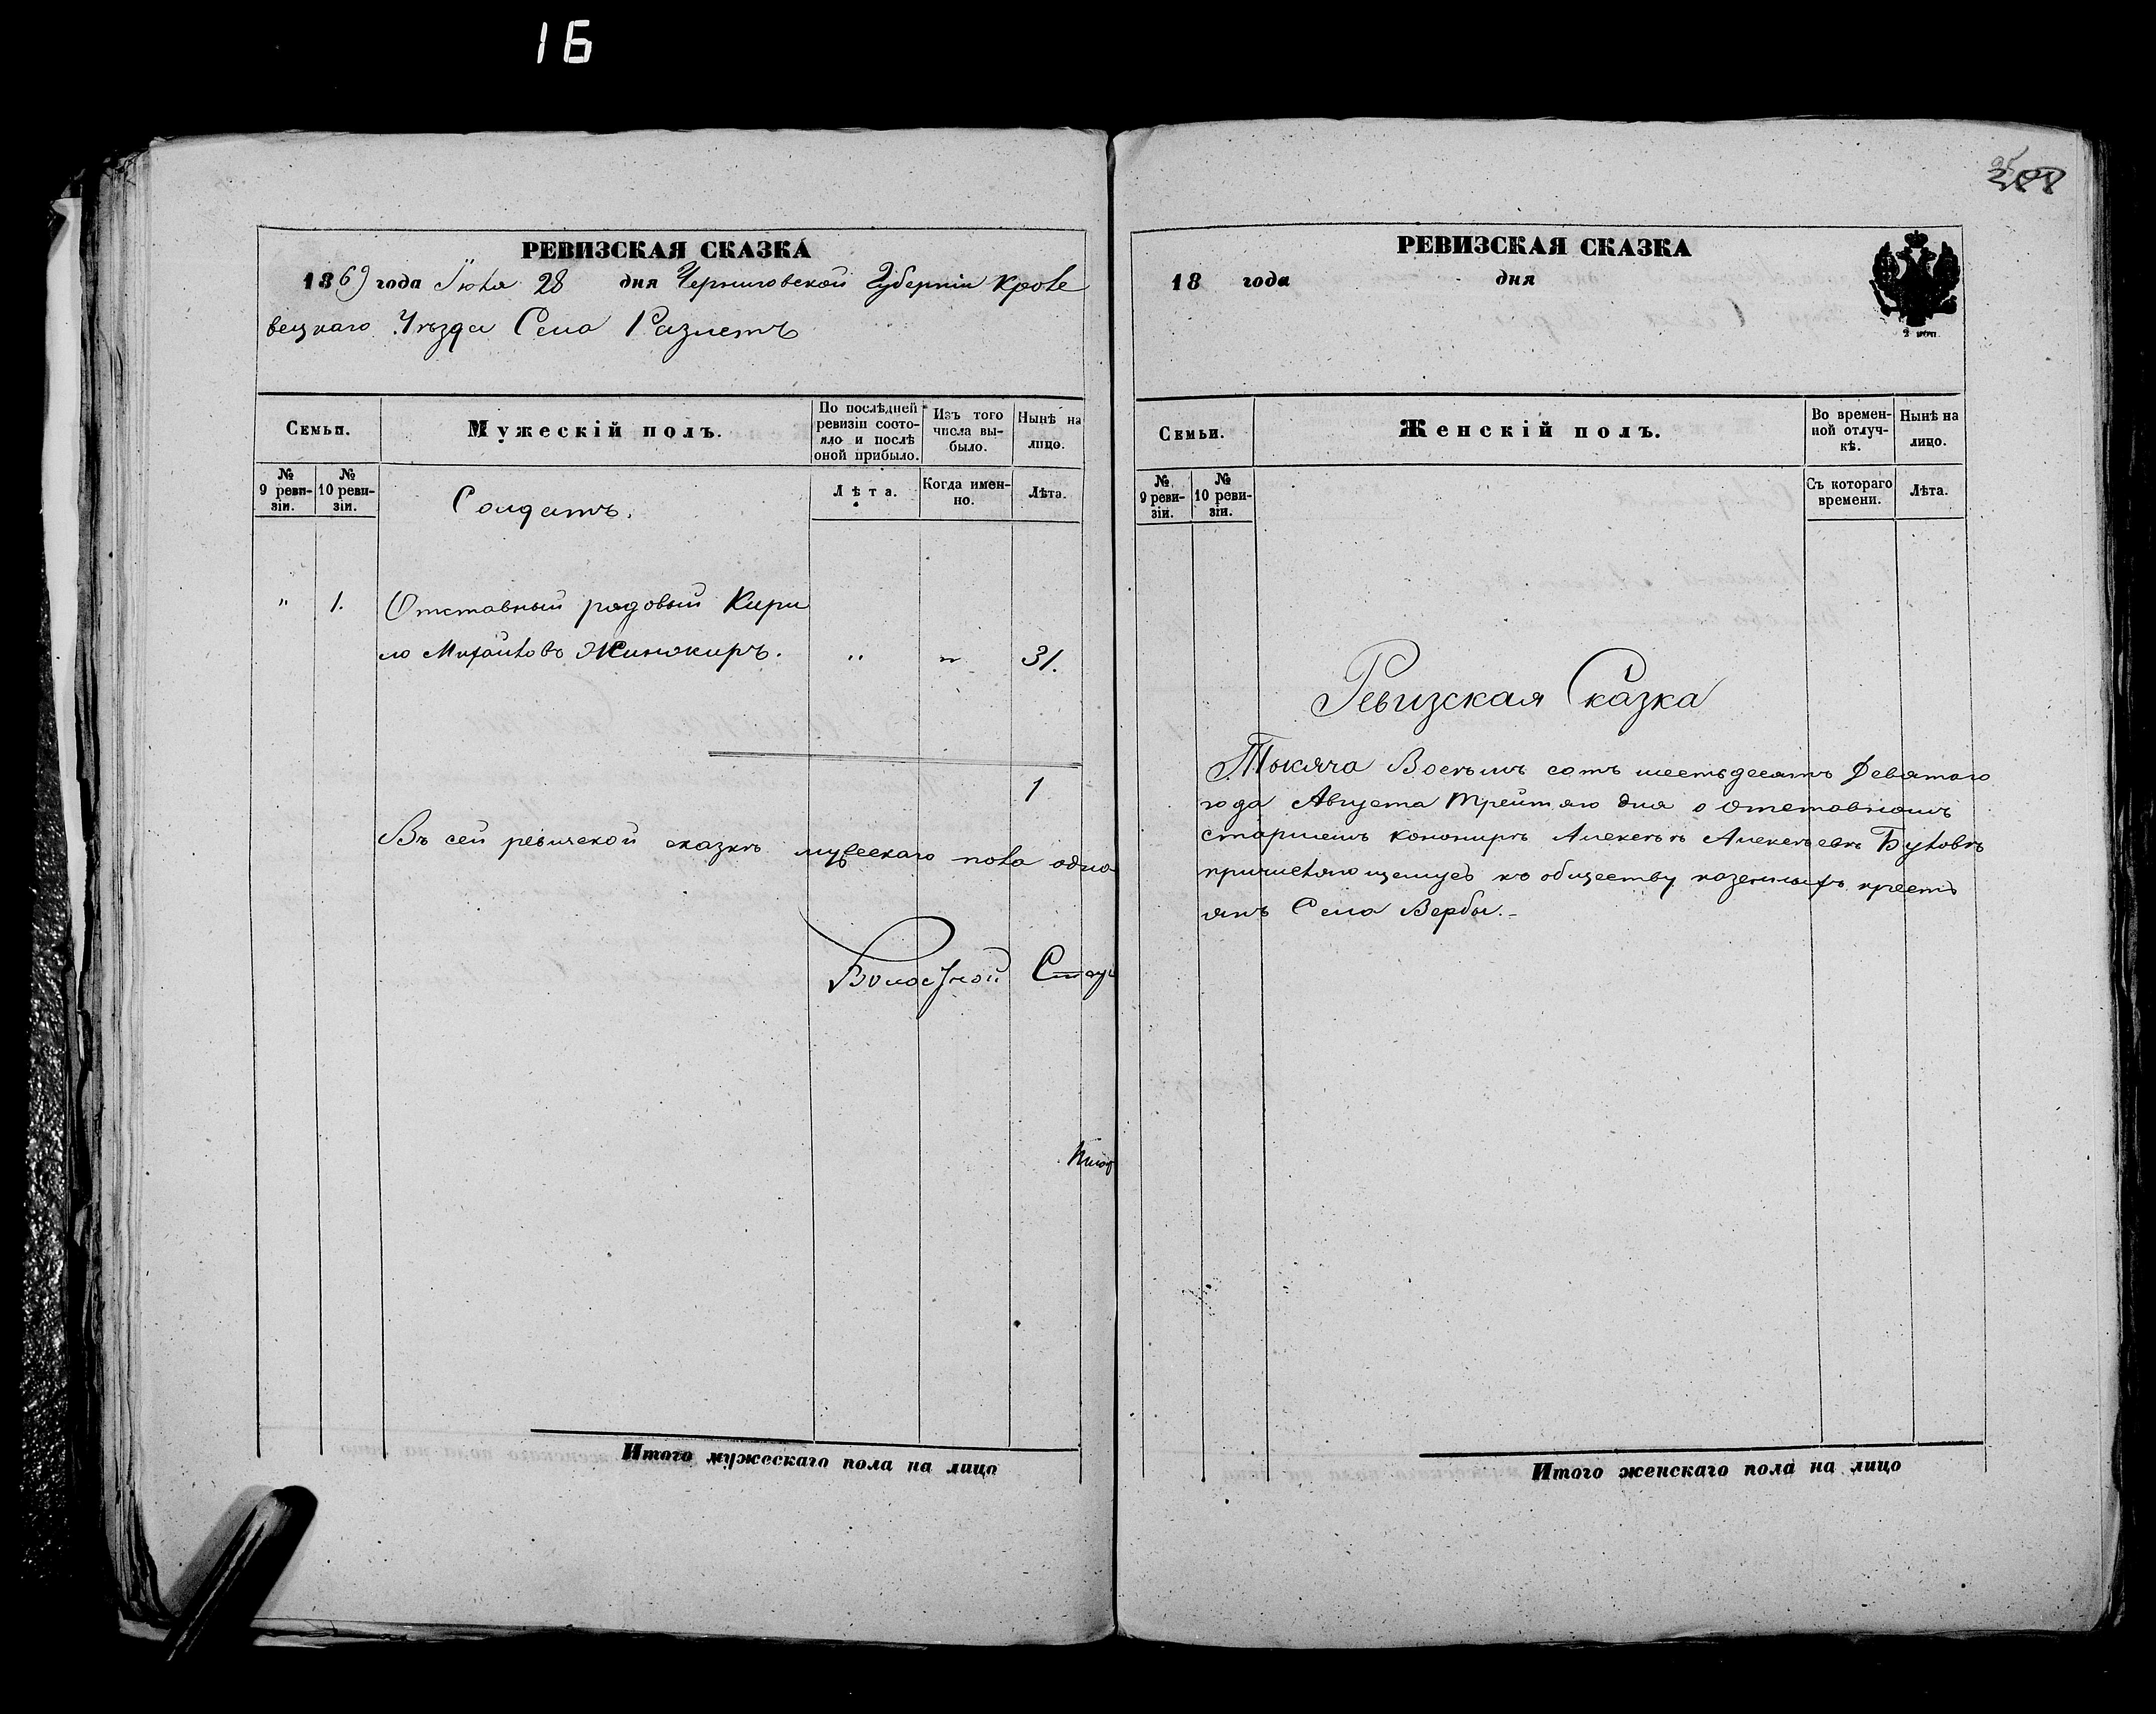 16
РЕВИЗСКАЯ СКАЗКА
1869 года Июля 28 дня Черниговской Губерніи Кроле
вецкаго Уѣзда Села Разлетъ
Семьи.
Мужескій полъ.
По послѣдней ревизіи состояло и послѣ оной прибыло.
Изъ того числа выбыло.
Нынѣ на лицо.
№ 9 ревизіи.
№ 10 ревизіи.
Солдатъ.
Лѣта.
Когда именно.
Лѣта.
" 1. Отставный рядовый Кири
ло Михайловъ Жинжиръ. " " 31.
1
Въ сей ревизской сказкѣ мужескаго пола одна
Волостной Стар
Итого мужескаго пола на лицо
РЕВИЗСКАЯ СКАЗКА
18 года дня
2 коп.
Семьи.
Женскій полъ.
Во временной отлучкѣ.
Нынѣ на лицо.
№ 9 ревизіи.
№ 10 ревизіи.
Съ котораго времени.
Лѣта.
Ревизская Сказка
Тысяча Восемь сотъ шестьдесятъ Девятаго
года Августа Третяго дня о отставномъ
старшемъ канонирѣ Алексѣѣ Алексѣевѣ Буловѣ
причисляющемся къ обществу казенныхъ крестъ
янъ Села Вербы.-
Итого женскаго пола на лицо